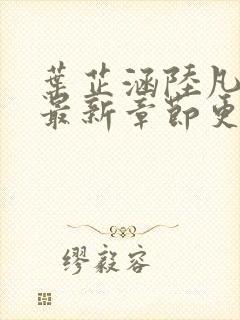 葉芷涵陸凡
最新章節更
繆毅容